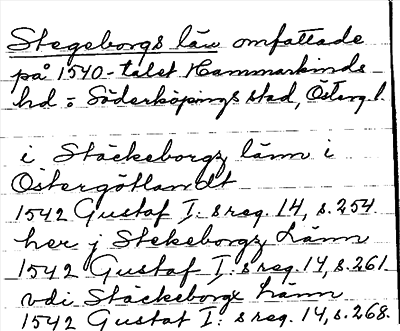 Stegeborgs län omfattade
på 1540-talet Hammarkinds
hd = Söderköpings stad, Österg l.
i Stäckeborgz länn i
Östergötlandt
1542 Gustaf I: s reg. 14, s. 254
her j Stekeborgz Länn
1542 Gustaf I: s reg. 14, s. 261
vdi Stäckeborgx Länn
1542 Gustaf I: s reg. 14, s. 268.